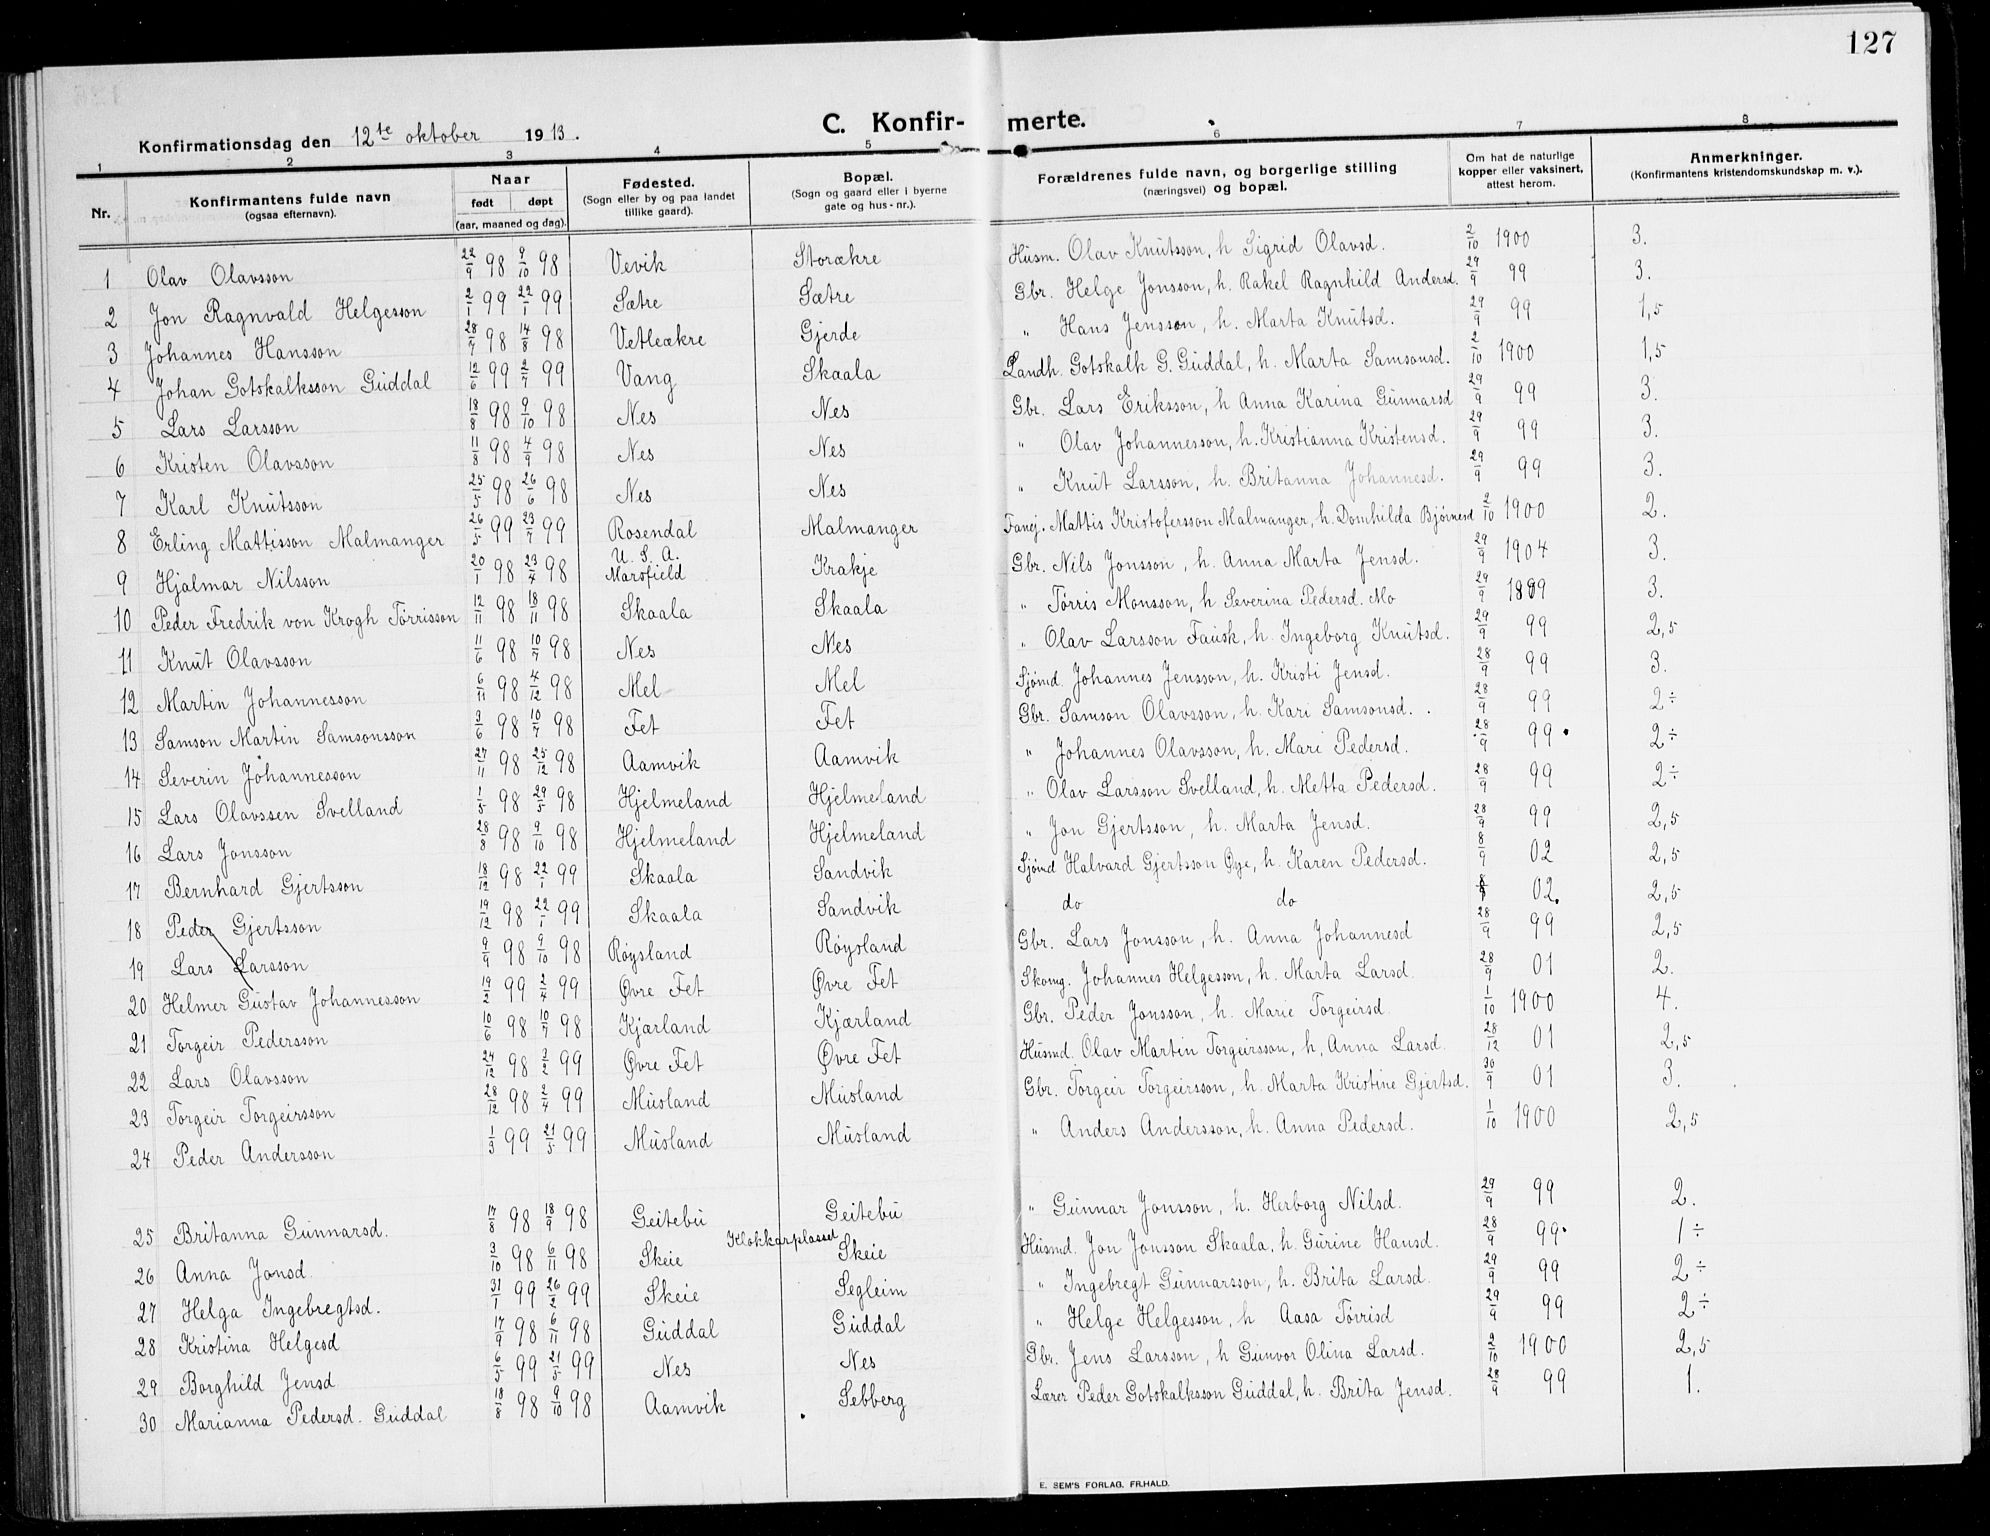 127
C. Konfir- merte.
Konfirmationsdag den 12te oktober 1913.
1 2 3 4 5 6 7 8
Nr. | Konfirmantens fulde navn (ogsaa efternavn). | Naar født døpt (aar, maaned og dag). | Fødested. (Sogn eller by og paa landet tillike gaard). | Bopæl. (Sogn og gaard eller i byerne gate og hus-nr.). | Forældrenes fulde navn, og borgerlige stilling (næringsvei) og bopæl. | Om hat de naturlige kopper eller vaksinert, attest herom. | Anmerkninger. (Konfirmantens kristendomskundskap m. v.).
1 Olav Olavsson 22/9 98 9/10 98 Vevik Storækre Husm. Olav Knutsson, h Sigrid Olavsd. 2/10 1900 3.
2 Jon Ragnvald Helgesson 2/1 99 22/1 99 Sætre Sætre Gbr. Helge Jonsson, h. Rakel Ragnhild Andersd. 29/9 99 3.
3 Johannes Hansson 28/7 98 14/8 98 Vetleækre Gjerde " Hans Jensson, h. Marta Knutsd. 29/9 99 1,5
4 Johan Gotskalksson Guddal 12/6 99 2/7 99 Vang Skaala Landh. Gotskalk G. Guddal, h. Marta Samsonsd. 2/10 1900 1,5
5 Lars Larsson 18/8 98 9/10 98 Nes Nes Gbr. Lars Eriksson, h Anna Karina Gunnarsd 29/9 99 3.
6 Kristen Olavsson 11/8 98 4/9 98 Nes Nes " Olav Johannesson, h. Kristianna Kristensd. 29/9 99 3.
7 Karl Knutsson 25/5 98 26/6 98 Nes Nes " Knut Larsson, h. Britanna Johannesd. 29/9 99 3.
8 Erling Mattisson Malmanger 26/5 99 23/7 99 Rosendal Malmanger Fanej. Mattis Kristofersson Malmanger, h. Domhilda Bjørnesd 2/10 1900 2.
9 Hjalmar Nilsson 20/1 98 23/4 98 U. S. A. Marsfield Krakje Gbr. Nils Jonsson, h. Anna Marta Jensd. 29/9 1904 3.
10 Peder Fredrik von Krogh Tørrisson 12/11 98 18/11 98 Skaala Skaala " Tørris Monsson, h Severina Pedersd. Mo 29/9 1899 3.
11 Knut Olavsson 11/6 98 10/7 98 Nes Nes " Olav Larsson Fausk, h. Ingeborg Knutsd. 29/9 99 2,5
12 Martin Johannesson 6/11 98 4/12 98 Mel Mel Sjømd. Johannes Jensson, h. Kristi Jensd. 28/9 99 3.
13 Samson Martin Samsonsson 3/6 98 10/7 98 Fet Fet Gbr. Samson Olavsson, h. Kari Samsonsd. 28/9 99 2÷
14 Severin Johannesson 27/11 98 25/12 98 Aamvik Aamvik " Johannes Olavsson, h. Mari Pedersd. 28/9 99 2÷
15 Lars Olavssen Svelland 1/5 98 29/5 98 Hjelmeland Hjelmeland " Olav Larsson Svelland, h. Metta Pedersd. 28/9 99 2÷
16 Lars Jonsson 28/8 98 9/10 98 Hjelmeland Hjelmeland " Jon Gjertsson, h. Marta Jensd. 28/9 99 2,5
17 Bernhard Gjertsson 18/12 98 22/1 99 Skaala Sandvik Sjømd Halvard Gjertsson Øye, h. Karen Pedersd. 8/9 02 2,5
18 Peder Gjertsson 19/12 98 22/1 99 Skaala Sandvik do do 8/9 02. 2,5
19 Lars Larsson 9/9 98 9/10 98 Røysland Røysland Gbr. Lars Jonsson, h. Anna Johannesd 28/9 99 2,5
20 Helmer Gustav Johannesson 19/2 99 2/4 99 Øvre Fet Øvre Fet Skomg. Johannes Helgesson, h. Marta Larsd. 28/9 01 2.
21 Torgeir Pedersson 10/6 98 10/7 98 Kjærland Kjærland Gbr. Peder Jonsson, h. Marie Torgeirsd. 1/10 1900 4.
22 Lars Olavsson 24/12 98 3/2 99 Øvre Fet Øvre Fet Husmd. Olav Martin Torgeirsson, h, Anna Larsd. 28/12 01 2,5
23 Torgeir Torgeirsson 28/12 98 2/4 99 Musland Musland Gbr. Torgeir Torgeirsson, h. Marta Kristine Gjertsd. 30/9 01 3.
24 Peder Andersson 1/3 99 21/5 99 Musland Musland " Anders Andersson, h. Anna Pedersd. 1/10 1900 2,5
25 Britanna Gunnarsd. 17/8 98 18/9 98 Geitebu Geitebu " Gunnar Jonsson, h. Herborg Nilsd. 29/9 99 2.
26 Anna Jonsd. 3/10 98 6/11 98 Skeie Klokkarplasset Skeie Husmd. Jon Jonsson Skaala, h. Gurine Hansd. 28/9 99. 1÷
27 Helga Ingebregtsd. 31/1 99 26/2 99 Skeie Segleim " Ingebregt Gunnarsson, h. Brita Larsd. 29/9 99 2÷
28 Kristina Helgesd 17/9 98 6/11 98 Guddal Guddal " Helge Helgesson, h Aasa Torisd 29/9 99 2÷
29 Borghild Jensd 6/5 99 21/5 99 Nes Nes Gbr. Jens Larsson, h Gunvor Olina Larsd. 2/10 1900 2,5
30 Marianna Pedersd. Guddal 18/8 98 9/10 98 Aamvik Sebberg Lærer Peder Gotskalksson Guddal, h. Brita Jensd. 28/9 99 1.
E. SEM'S FORLAG, FR.HALD.